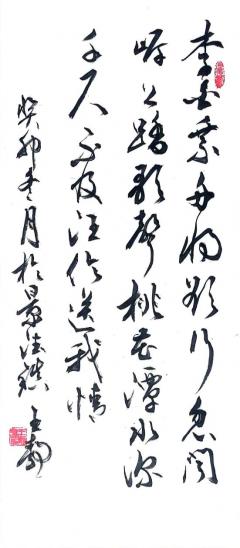 李白乘舟将欲行忽闻
岸上踏歌聲桃花潭水深
千尺不及汪伦送我情
癸卯冬月於景德镇